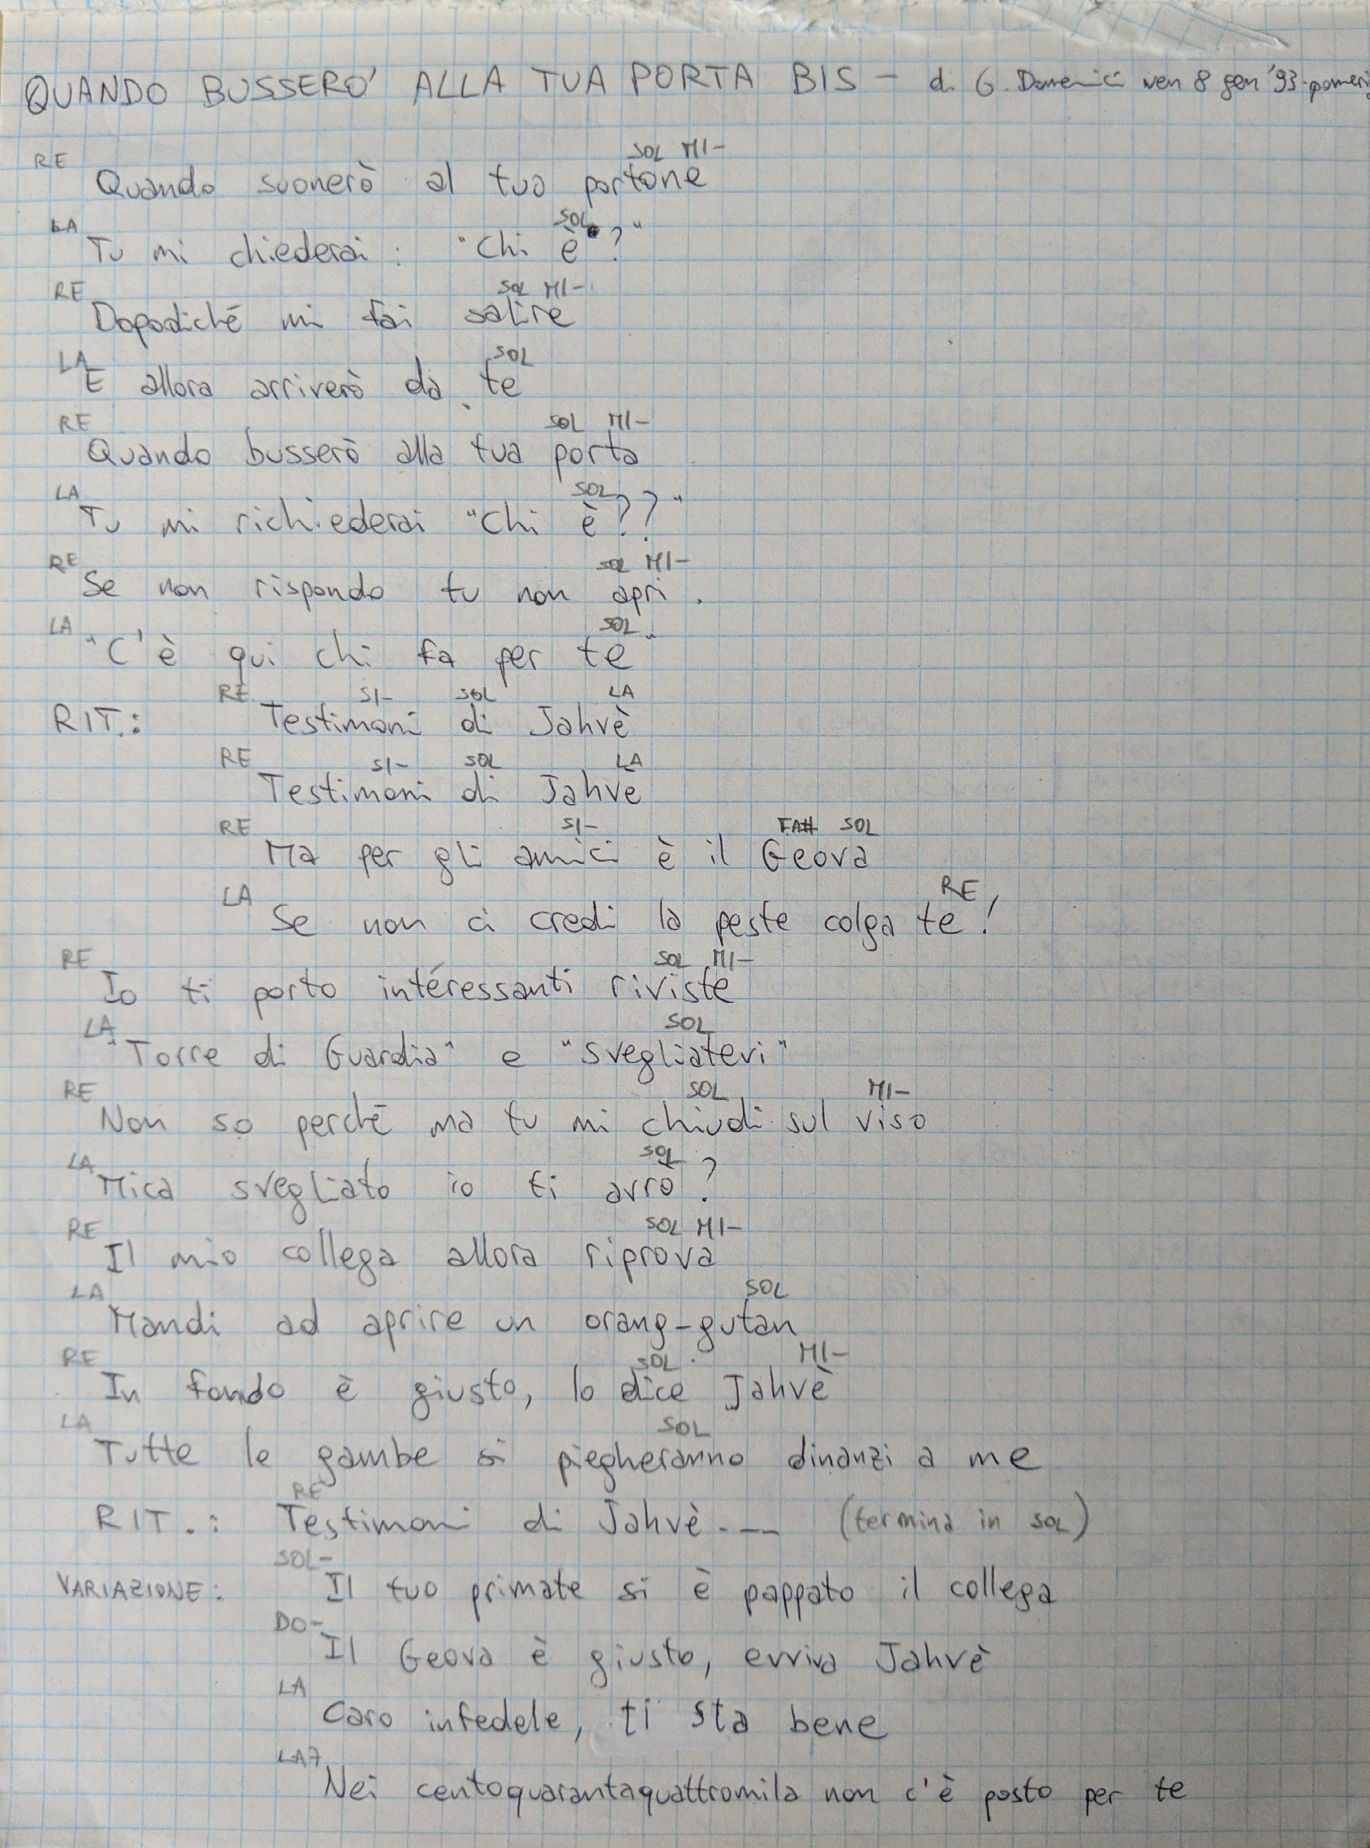 QUANDO BUSSERO' ALLA TUA PORTA BIS - di G. Domenici ven 8 gen '93 pomeri
RE SOL MI-
Quando suonerò al tuo portone
LA SOL
Tu mi chiederai: "Chi è?"
RE SOL MI-
Dopodiché mi fai salire
LA SOL
E allora arriverò da te
RE SOL MI-
Quando busserò alla tua porta
LA SOL
Tu mi richiederai "Chi è??"
RE SOL MI-
Se non rispondo tu non apri.
LA SOL
"C'è qui chi fa per te"
RE SI- SOL LA
RIT.: Testimoni di Jahvè
RE SI- SOL LA
Testimoni di Jahvè
RE SI- FA# SOL
Ma per gli amici è il Geova
LA RE
Se non ci credi la peste colga te!
RE SOL MI-
Io ti porto intéressanti riviste
LA SOL
"Torre di Guardia" e "svegliatevi"
RE SOL MI-
Non so perché ma tu mi chiudi sul viso
LA SOL
Mica svegliato io ti avrò?
RE SOL MI-
Il mio collega allora riprova
LA SOL
Mandi ad aprire un orang-gutan
RE SOL MI-
In fondo è giusto, lo dice Jahvè
LA SOL
Tutte le gambe si piegheranno dinanzi a me
RE
RIT.: Testimoni di Jahvè---- (termina in SOL)
SOL-
VARIAZIONE: Il tuo primate si è pappato il collega
DO-
Il Geova è giusto, evviva Jahvè
LA
Caro infedele, ti sta bene
LA7
Nei centoquarantaquattromila non c'è posto per te